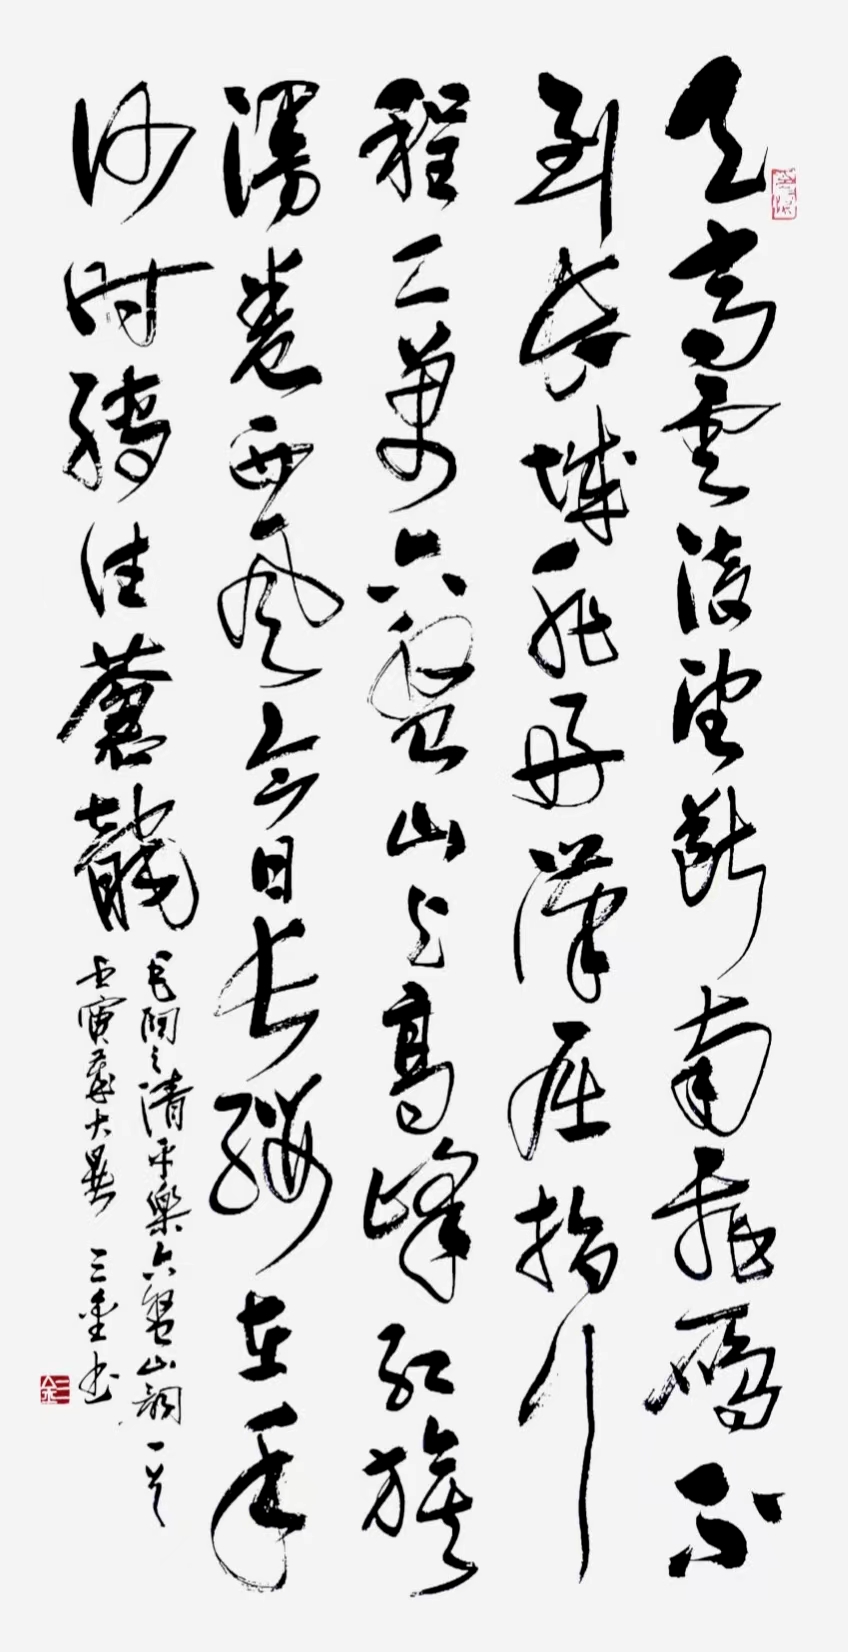 天高雲淡望斷南飛鴈不
到長城非好漢屈指行
程二萬六盤山上高峰紅旗
漫卷西風今日長纓在手
何時縛住蒼龍
毛潤之清平樂六盤山詞一首
壬寅歲大暑 三金书
三金